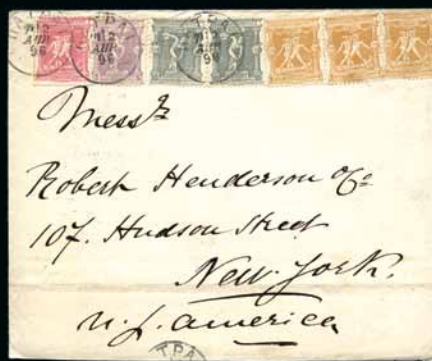 ΑΠΡ
96
Messrs
Robert Henderson & Co
107. Hudson Street
New York.
U. S. America
ΤΡΑ